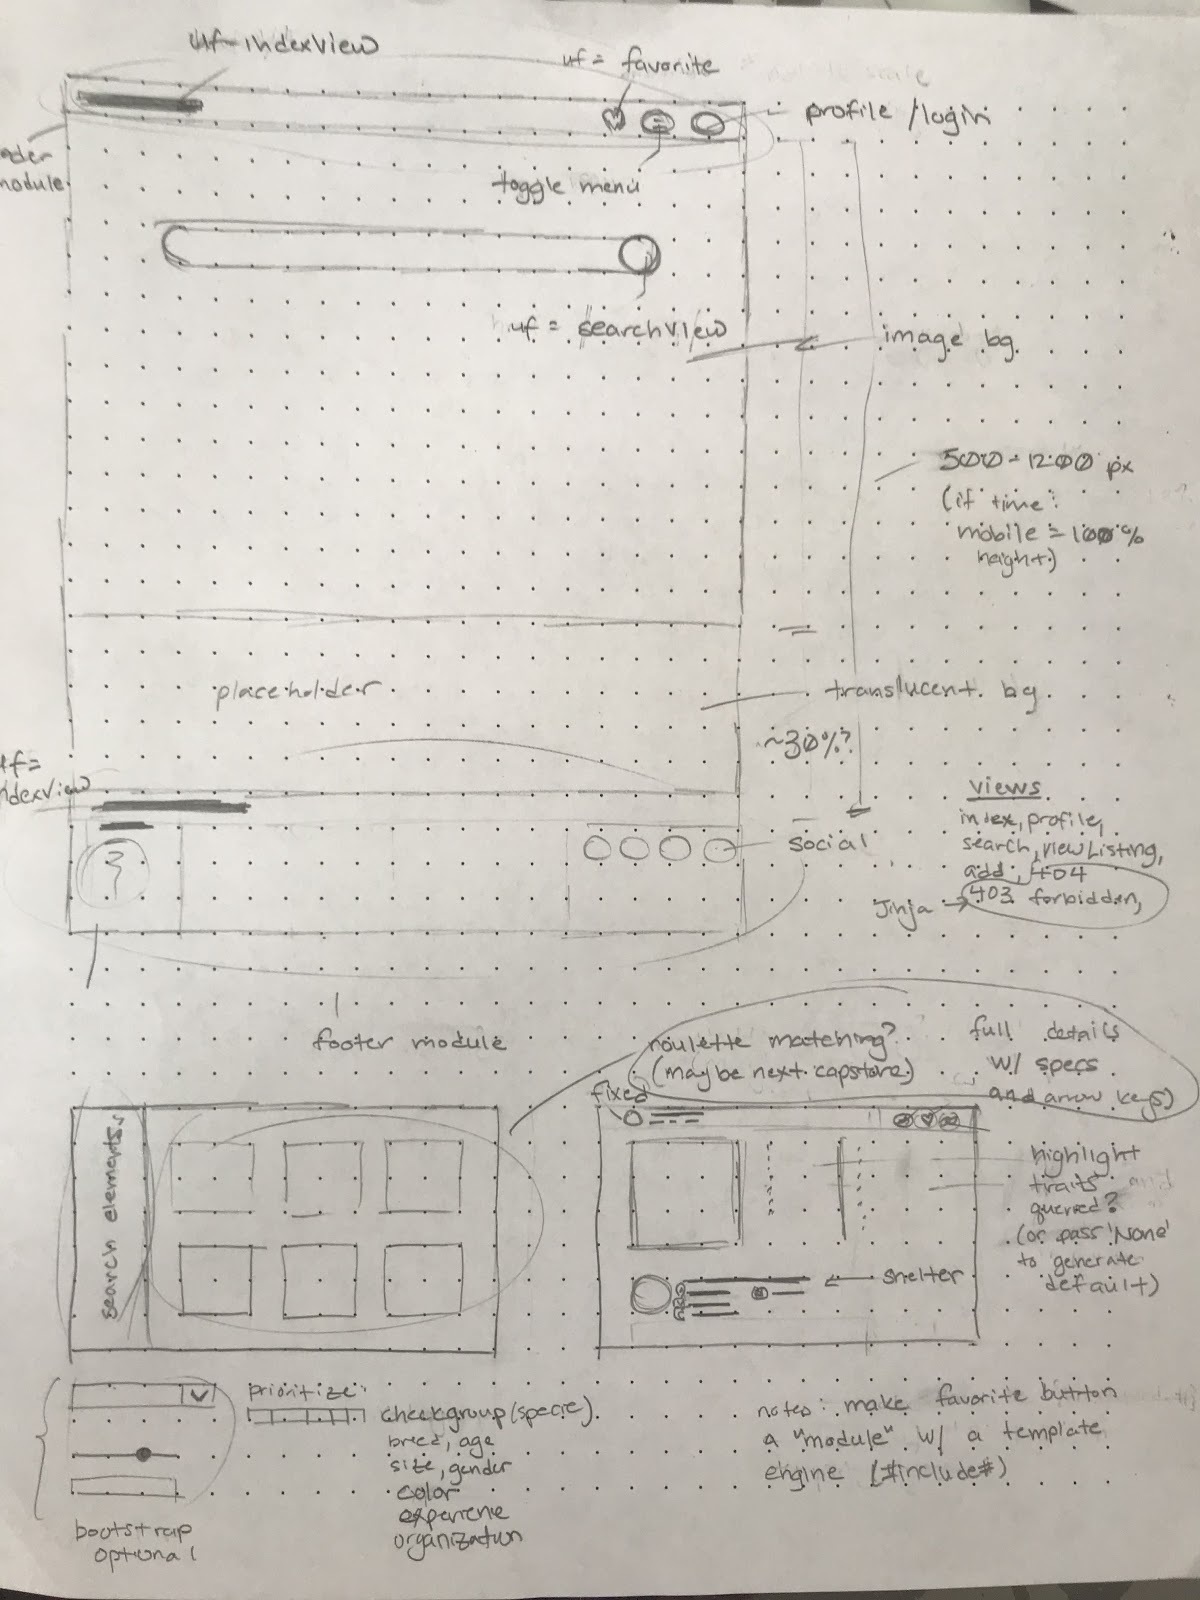 uf-indexView
uf = favorite
profile/login
toggle menu
module
uf = searchView
image bg
500-1200 px
(if time:
mobile = 100%
height)
placeholder
translucent bg
~30%?
uf=
indexView
views
index, profile,
search, viewListing,
add, 404
403 forbidden,
Jinja
social
footer module
roulette matching?
(maybe next capstone)
full details
w/ specs
and arrow keys)
fixed
search elements
highlight
traits
queried?
(or pass 'None'
to generate
default)
shelter
prioritize:
checkgroup (specie)
breed, age
size, gender
color
organization
bootstrap
optional
notes: make favorite button
a "module" w/ a template
engine (#include#)